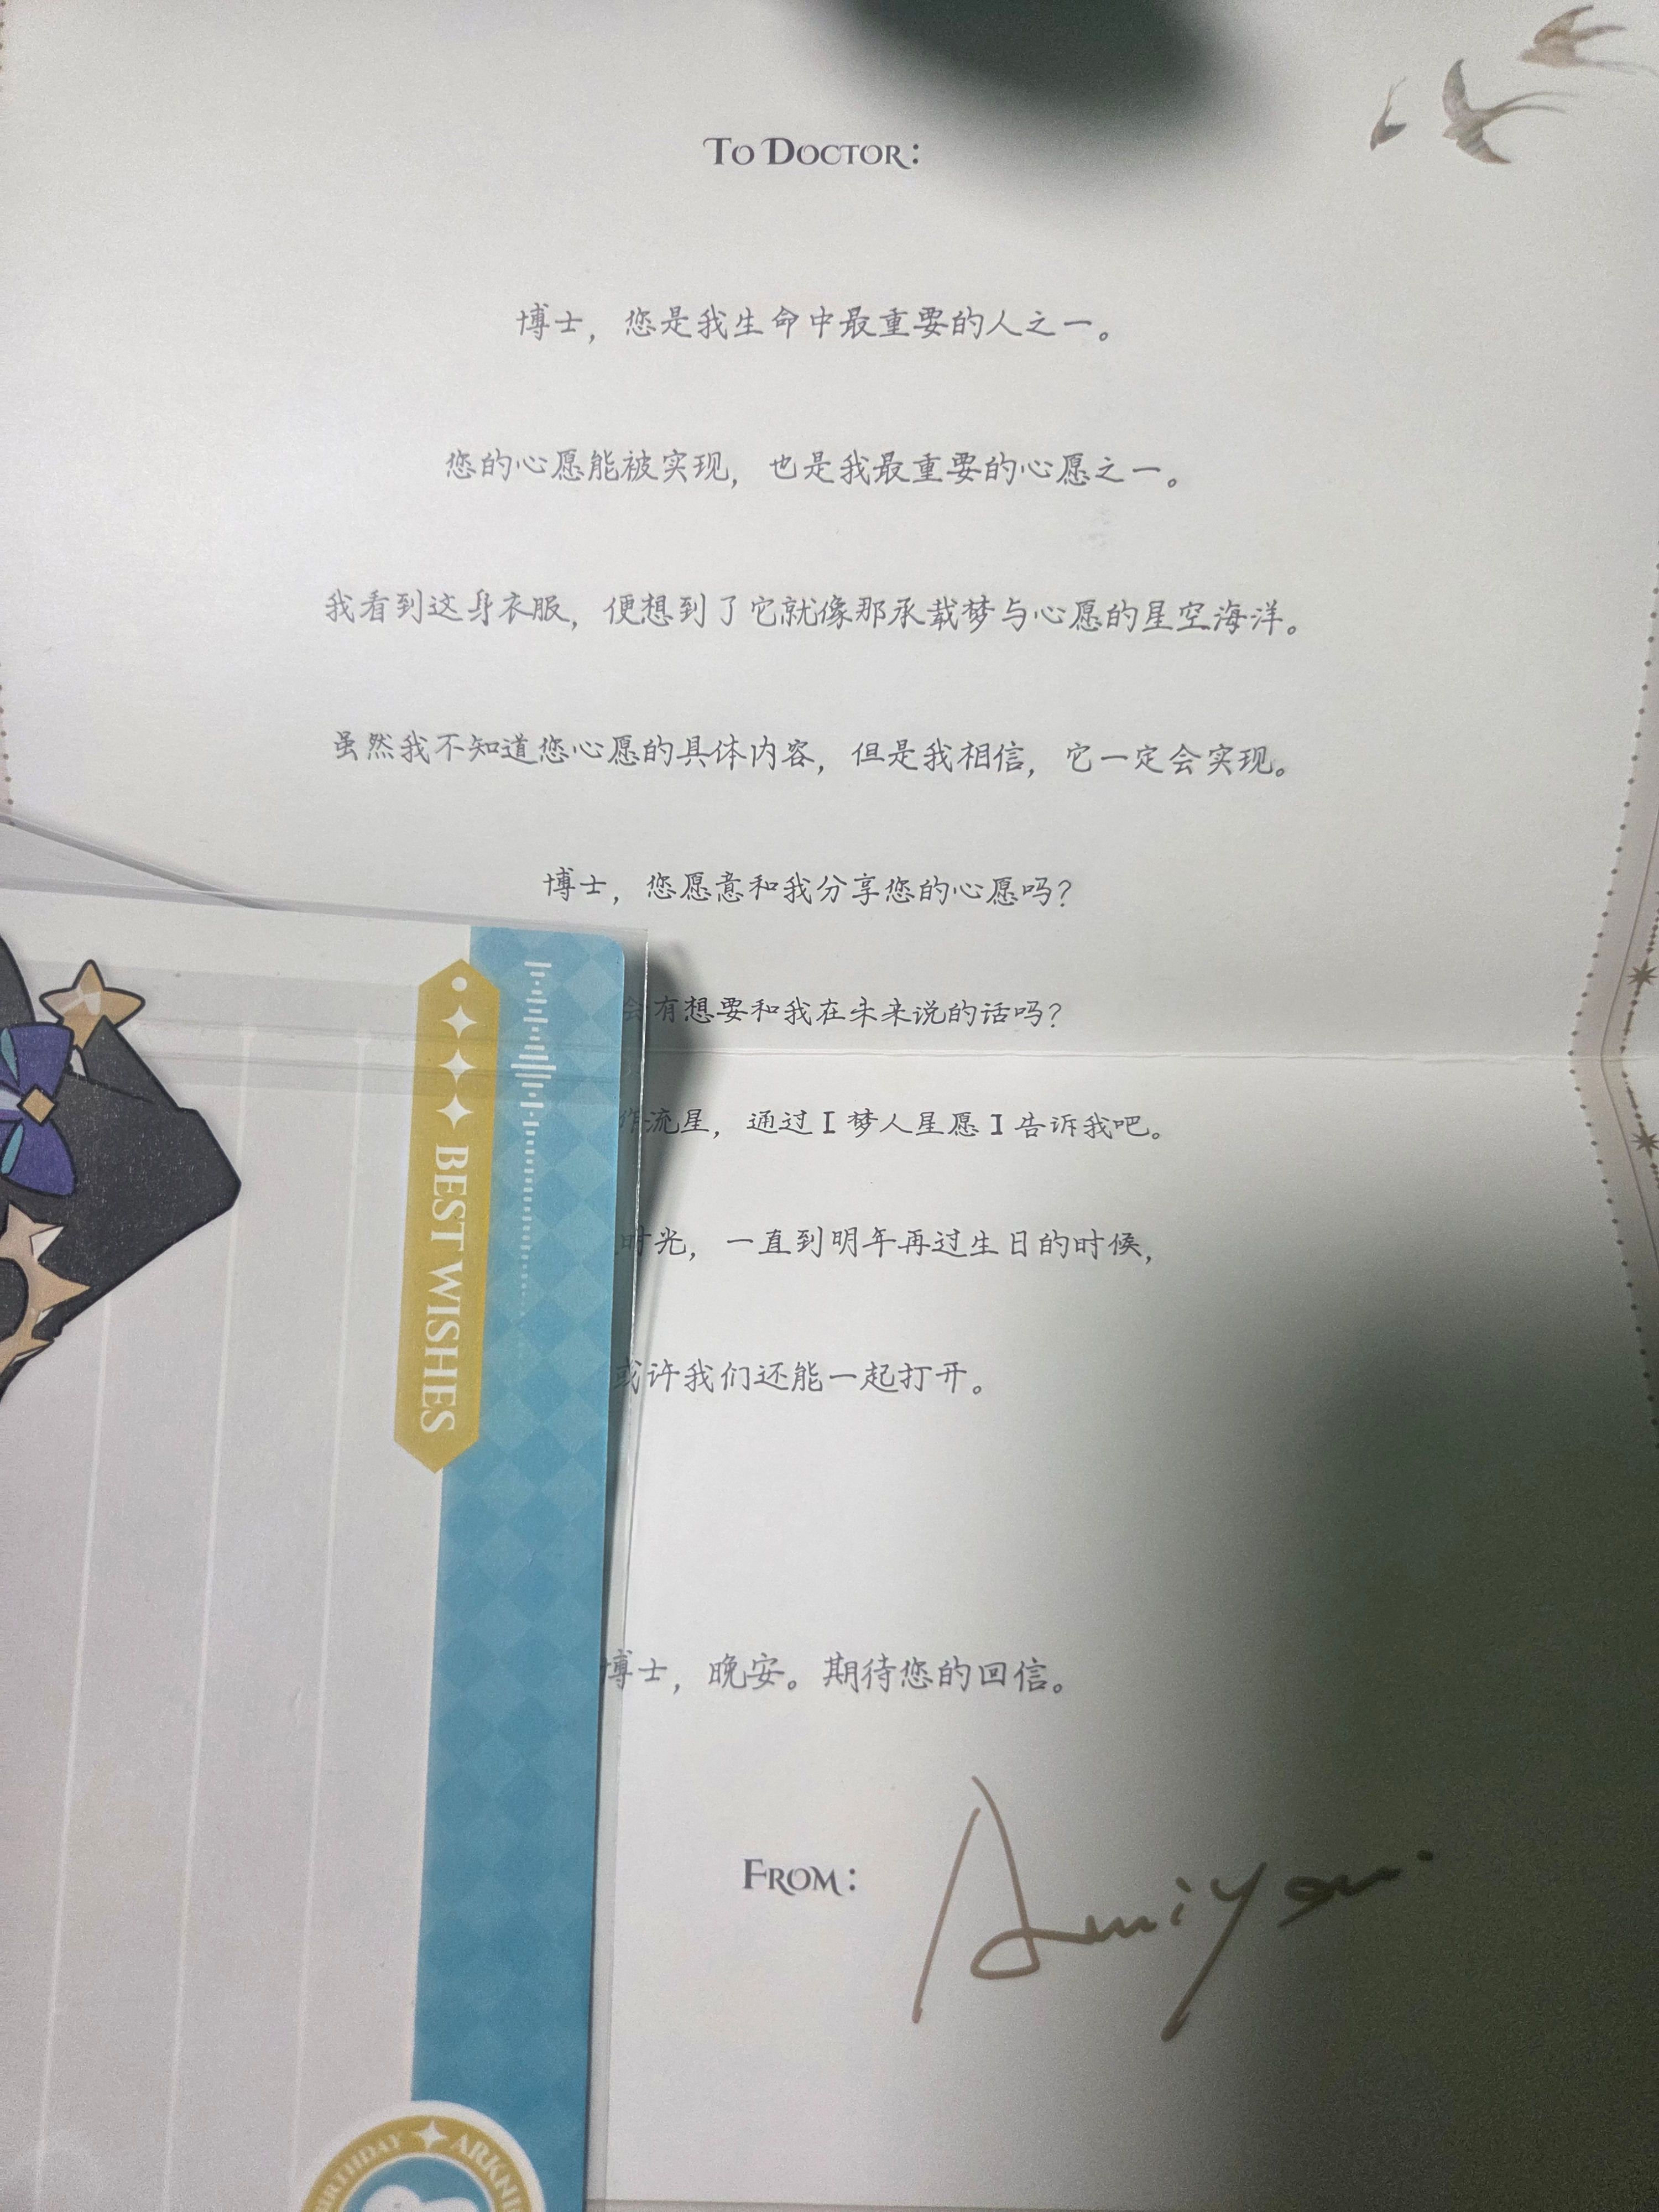 TO DOCTOR:
博士，您是我生命中最重要的人之一。
您的心愿能被实现，也是我最重要的心愿之一。
我看到这身衣服，便想到了它就像那承载梦与心愿的星空海洋。
虽然我不知道您心愿的具体内容，但是我相信，它一定会实现。
博士，您愿意和我分享您的心愿吗？
会有想要和我在未来说的话吗？
作流星，通过【梦人星愿】告诉我吧。
时光，一直到明年再过生日的时候，
或许我们还能一起打开。
博士，晚安。期待您的回信。
FROM:
Amiya
BEST WISHES
BIRTHDAY
ARKNI